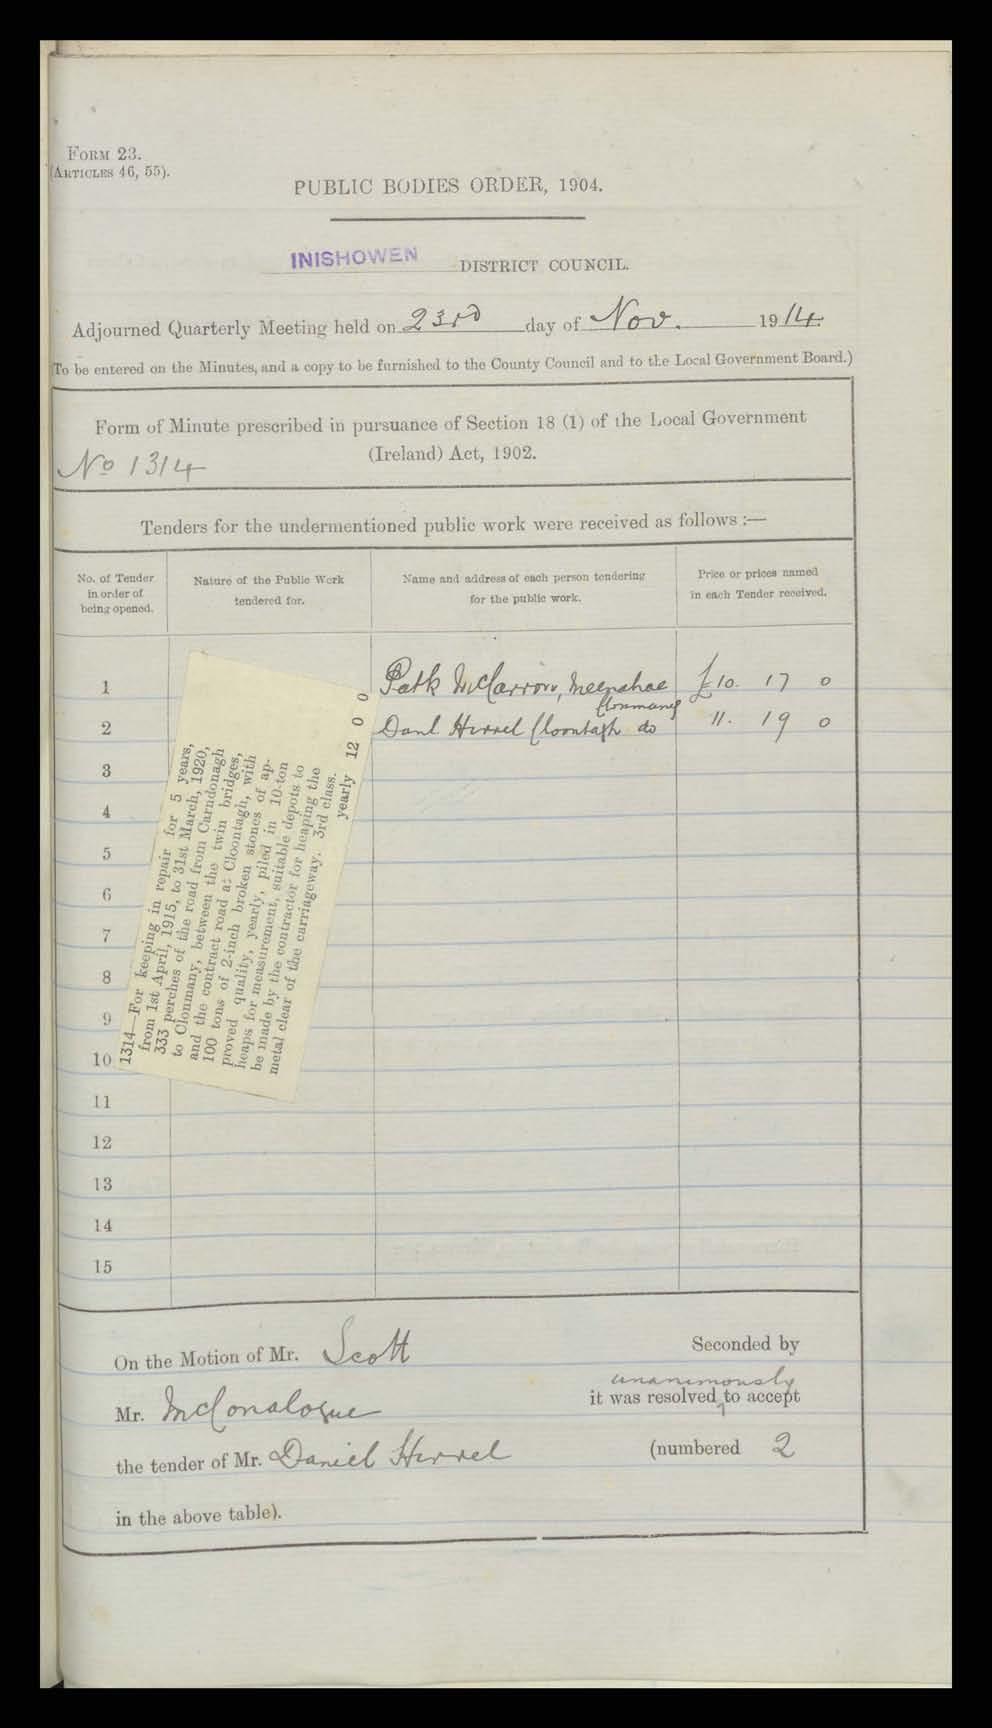 FORM 23.
(ARTICLES 46, 55).
PUBLIC BODIES ORDER, 1904.
INISHOWEN DISTRICT COUNCIL.
Adjourned Quarterly Meeting held on 23rd day of Nov. 1914.
(To be entered on the Minutes, and a copy to be furnished to the County Council and to the Local Government Board.)
Form of Minute prescribed in pursuance of Section 18 (1) of the Local Government
(Ireland) Act, 1902.
No 1314
Tenders for the undermentioned public work were received as follows :—
No. of Tender in order of being opened.
Nature of the Public Work tendered for.
Name and address of each person tendering for the public work.
Price or prices named in each Tender received.
1 Patk McCarron, Meenahae £10. 17 0
Clonmany
2 Danl Hirrel Cloontagh do 11. 19 0
3
4
5
6
7
8
9
10
11
12
13
14
15
1314—For keeping in repair for 5 years,
from 1st April, 1915, to 31st March, 1920,
333 perches of the road from Carndonagh
to Clonmany, between the twin bridges,
and the contract road at Cloontagh, with
100 tons of 2-inch broken stones of ap-
proved quality, yearly, piled in 10-ton
heaps for measurement, suitable depots to
be made by the contractor for heaping the
metal clear of the carriageway. 3rd class.
yearly 12 0 0
On the Motion of Mr. Scott Seconded by
unanimously
Mr. McConalogue it was resolved to accept
the tender of Mr. Daniel Hirrel (numbered 2
in the above table).